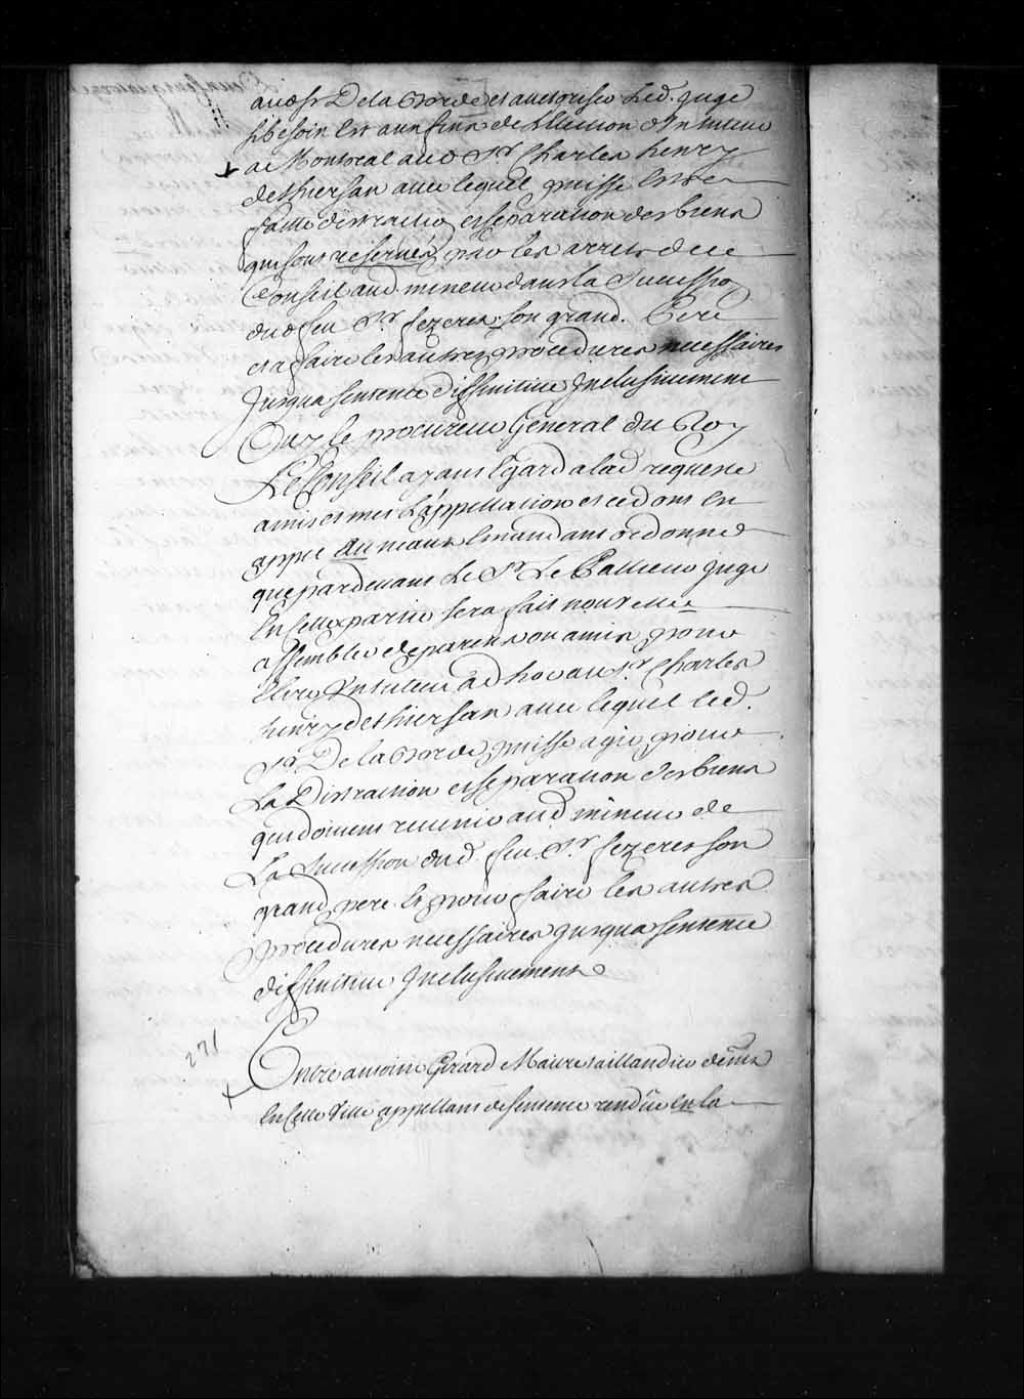 aud sr De la Borde et authoriser led. Juge
si besoin est aux fins de l'Election d'un tuteur
de Montreal aud Sr Charles henry
dethiersan avec lequel puisse estre
faitte distraction et separation des biens
qui sont reservés par les arrets de ce
Conseil aud mineur dans la Succession
dud feu Sr fezeret son grand Pere
et a faire les autres procedures necessaires
Jusqua sentence diffinitive Inclusivement
Ouy le procureur General du Roy
Le Conseil ayant Egard a lad requeste
a mis et met L'appellation et ce dont Est
appel au neant Emandant ordonne
que pardevant Le Sr Le Pallieur Juge
En cette partie sera fait nouvelle
assemblée de parens ou amis pour
Elire Un tuteur ad hoc au Sr Charles
henry dethiersan avec lequel led.
Sr De la Borde puisse agir pour
La Distraction et separation des biens
qui doivent revenir aud mineur de
La Succession dud. feu Sr fezeret son
grand pere Et pour faire les autres
procedures necessaires Jusqua sentence
diffinitive Inclusivement
271
Entre antoine Girard Maitre taillandier demt
En Cette Ville appellant de sentence rendûe en la